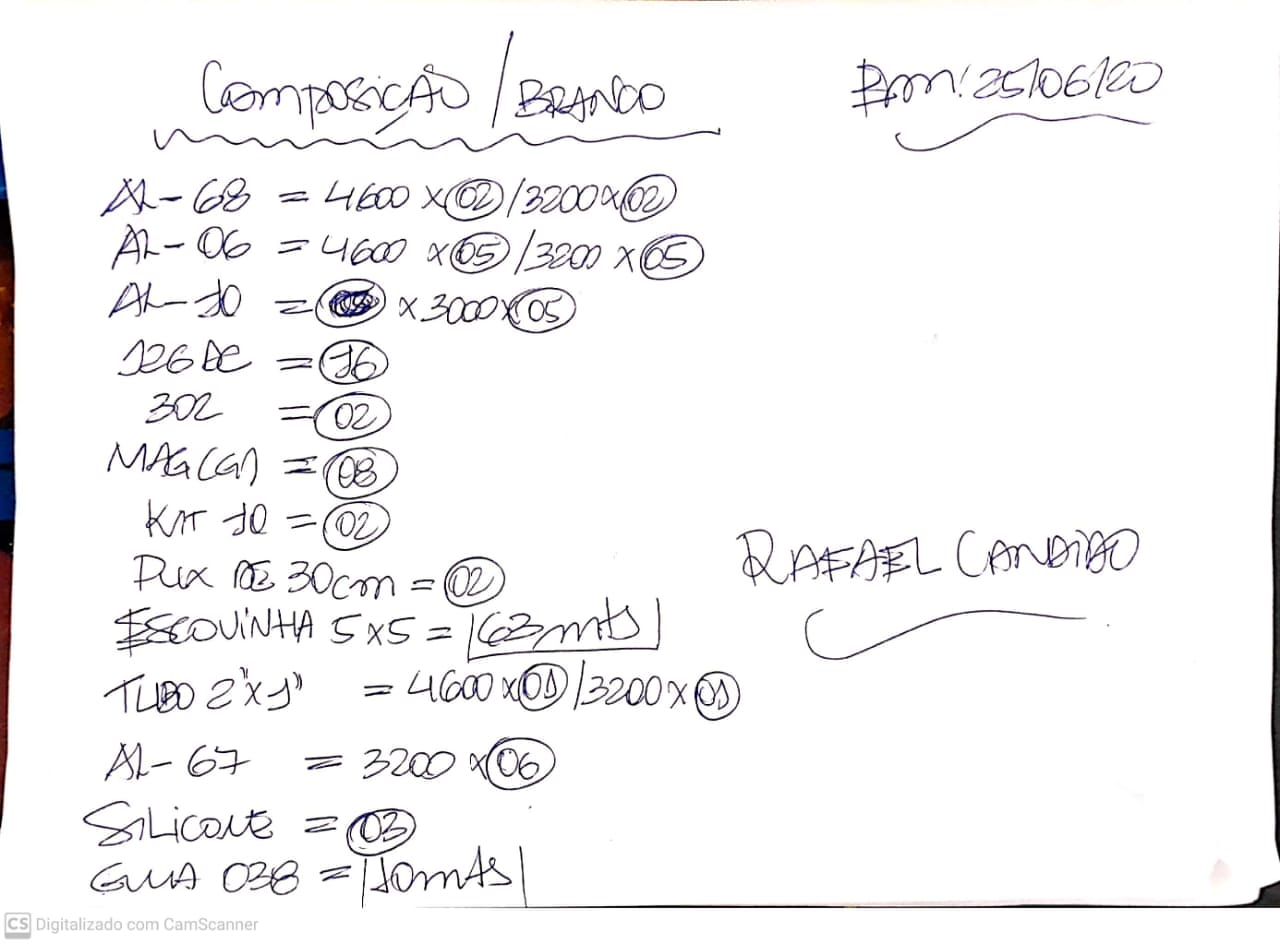 Composição / BRANCO
Bm: 25/06/20
AL-68 = 4600 x 02 / 3200 x 02
AL-06 = 4600 x 05 / 3200 x 05
AL-10 = x 3000 x 05
126 DE = 16
302 = 02
MAG (G1) = 08
KIT 10 = 02
PUX DE 30cm = 02
RAFAEL CANDIDO
ESCOVINHA 5x5 = 63 mts
TUBO 2"x1" = 4600 x 01 / 3200 x 01
AL-67 = 3200 x 06
SILICONE = 03
GUIA 038 = 10mts
CS Digitalizado com CamScanner